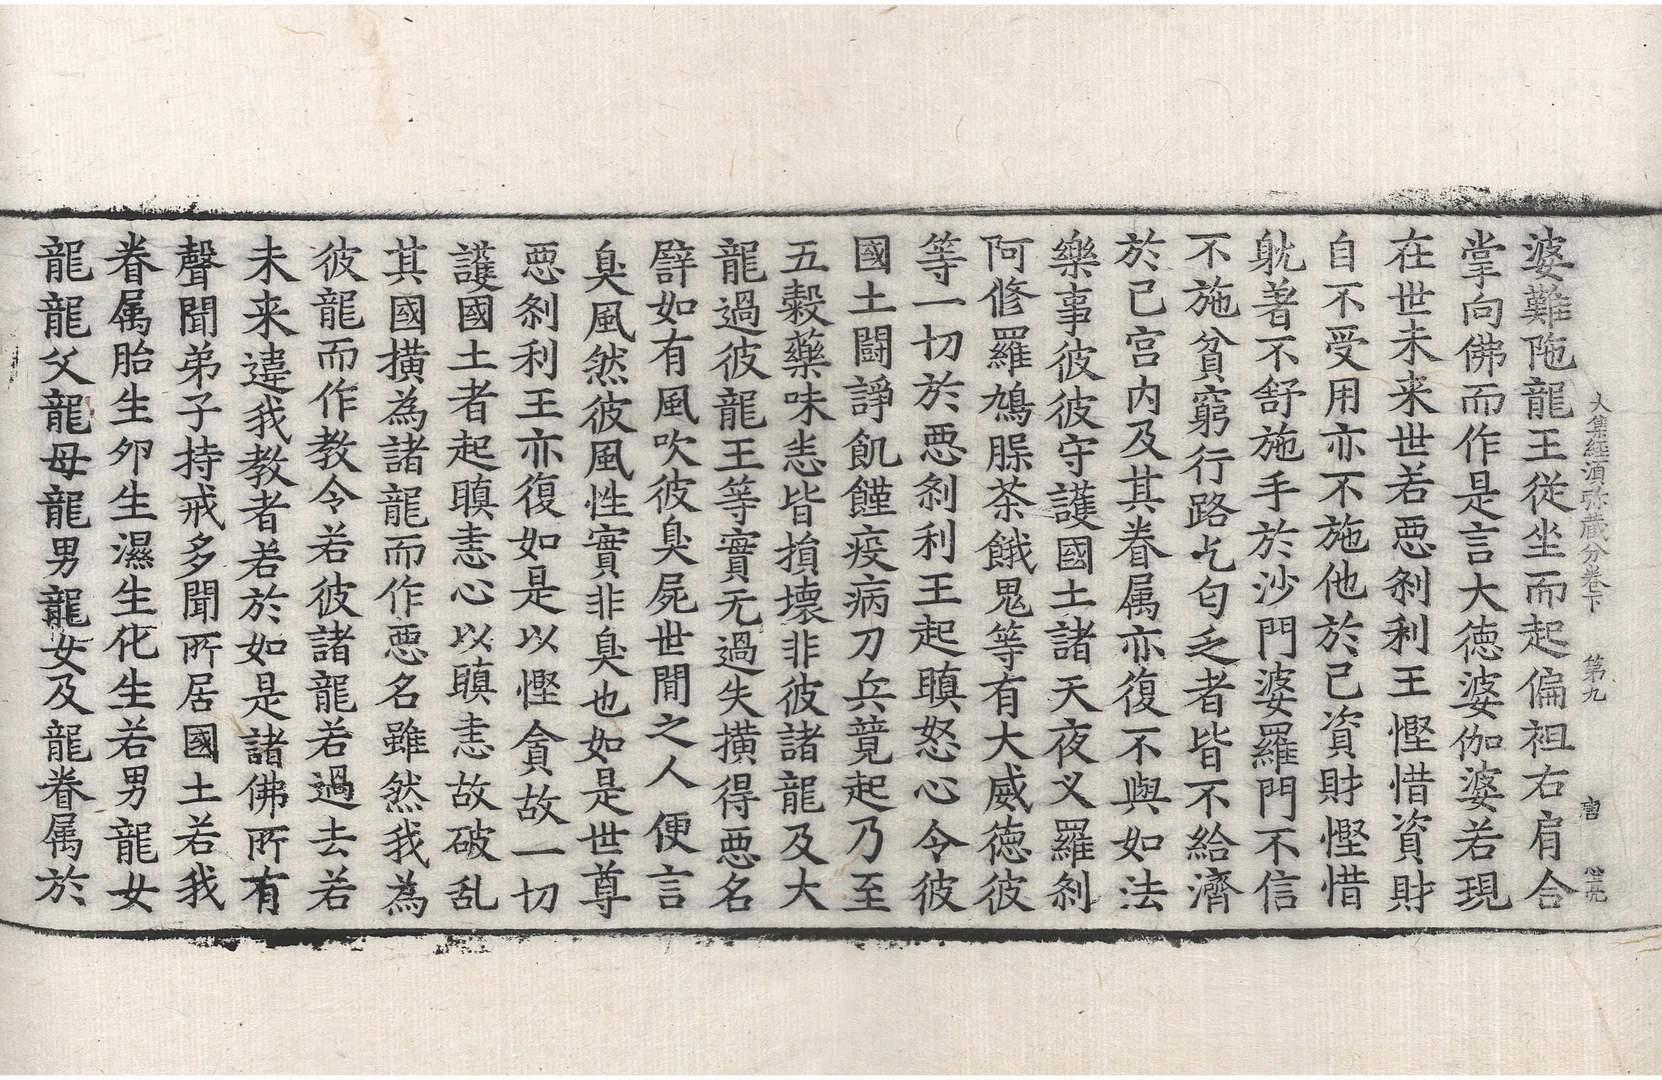 大集經須弥藏分卷下 第九 唐
婆難陁龍王從坐而起偏袒右肩合
掌向佛而作是言大德婆伽婆若現
在世未来世若悪刹利王慳惜資財
自不受用亦不施他於己資財慳惜
躭著不舒施手於沙門婆羅門不信
不施貧窮行路乞匂乏者皆不給濟
於己宫内及其眷属亦復不與如法
樂事彼彼守護國土諸天夜叉羅刹
阿修羅鳩腬荼餓鬼等有大威德彼
等一切於悪刹利王起瞋怒心令彼
國土鬪諍飢饉疫病刀兵競起乃至
五糓藥味悉皆損壞非彼諸龍及大
龍過彼龍王等實无過失撗得悪名
譬如有風吹彼臭屍世間之人便言
臭風然彼風性實非臭也如是世尊
悪刹利王亦復如是以慳貪故一切
護國土者起瞋恚心以瞋恚故破乱
其國撗為諸龍而作悪名雖然我為
彼龍而作教令若彼諸龍若過去若
未来違我教者若於如是諸佛所有
聲聞弟子持戒多聞所居國土若我
眷属胎生夘生濕生化生若男龍女
龍龍父龍母龍男龍女及龍眷属於